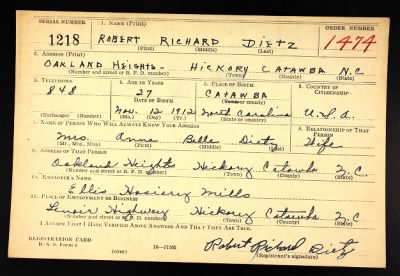 SERIAL NUMBER 1. NAME (Print) ORDER NUMBER
1218 ROBERT RICHARD DIETZ 1474
(First) (Middle) (Last)
2. ADDRESS (Print)
OAKLAND HEIGHTS- HICKORY CATAWBA N.C.
(Number and street or R. F. D. number) (Town) (County) (State)
3. TELEPHONE 4. AGE IN YEARS 5. PLACE OF BIRTH 6. COUNTRY OF CITIZENSHIP
848 27 CATAWBA
DATE OF BIRTH (Town or county)
Nov. 12 1912 North Carolina U.S.A.
(Exchange) (Number) (Mo.) (Day) (Yr.) (State or country)
7. NAME OF PERSON WHO WILL ALWAYS KNOW YOUR ADDRESS 8. RELATIONSHIP OF THAT PERSON
Mrs. Anna Belle Dietz Wife
(Mr., Mrs., Miss) (First) (Middle) (Last)
9. ADDRESS OF THAT PERSON
Oakland Heights Hickory Catawba N.C.
(Number and street or R. F. D. number) (Town) (County) (State)
10. EMPLOYER'S NAME
Ellis Hosiery Mills
11. PLACE OF EMPLOYMENT OR BUSINESS
Lenoir Highway Hickory Catawba N.C.
(Number and street or R. F. D. number) (Town) (County) (State)
I AFFIRM THAT I HAVE VERIFIED ABOVE ANSWERS AND THAT THEY ARE TRUE.
REGISTRATION CARD
D. S. S. Form 1 (over) 16—17105
Robert Richard Dietz
(Registrant's signature)